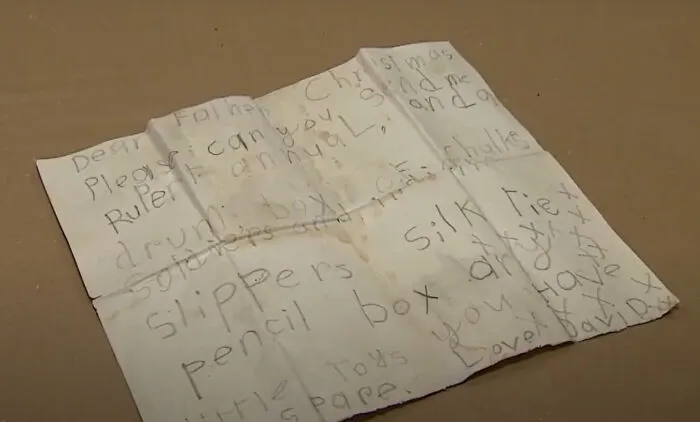 Dear Father Christmas
Please can you send me
Rupert annual, and a
drum box of chalks
Soldiers and Indians
slippers silk tie x
pencil box any x x x x x
little Toys you Have x x x
spare. Love x David x x